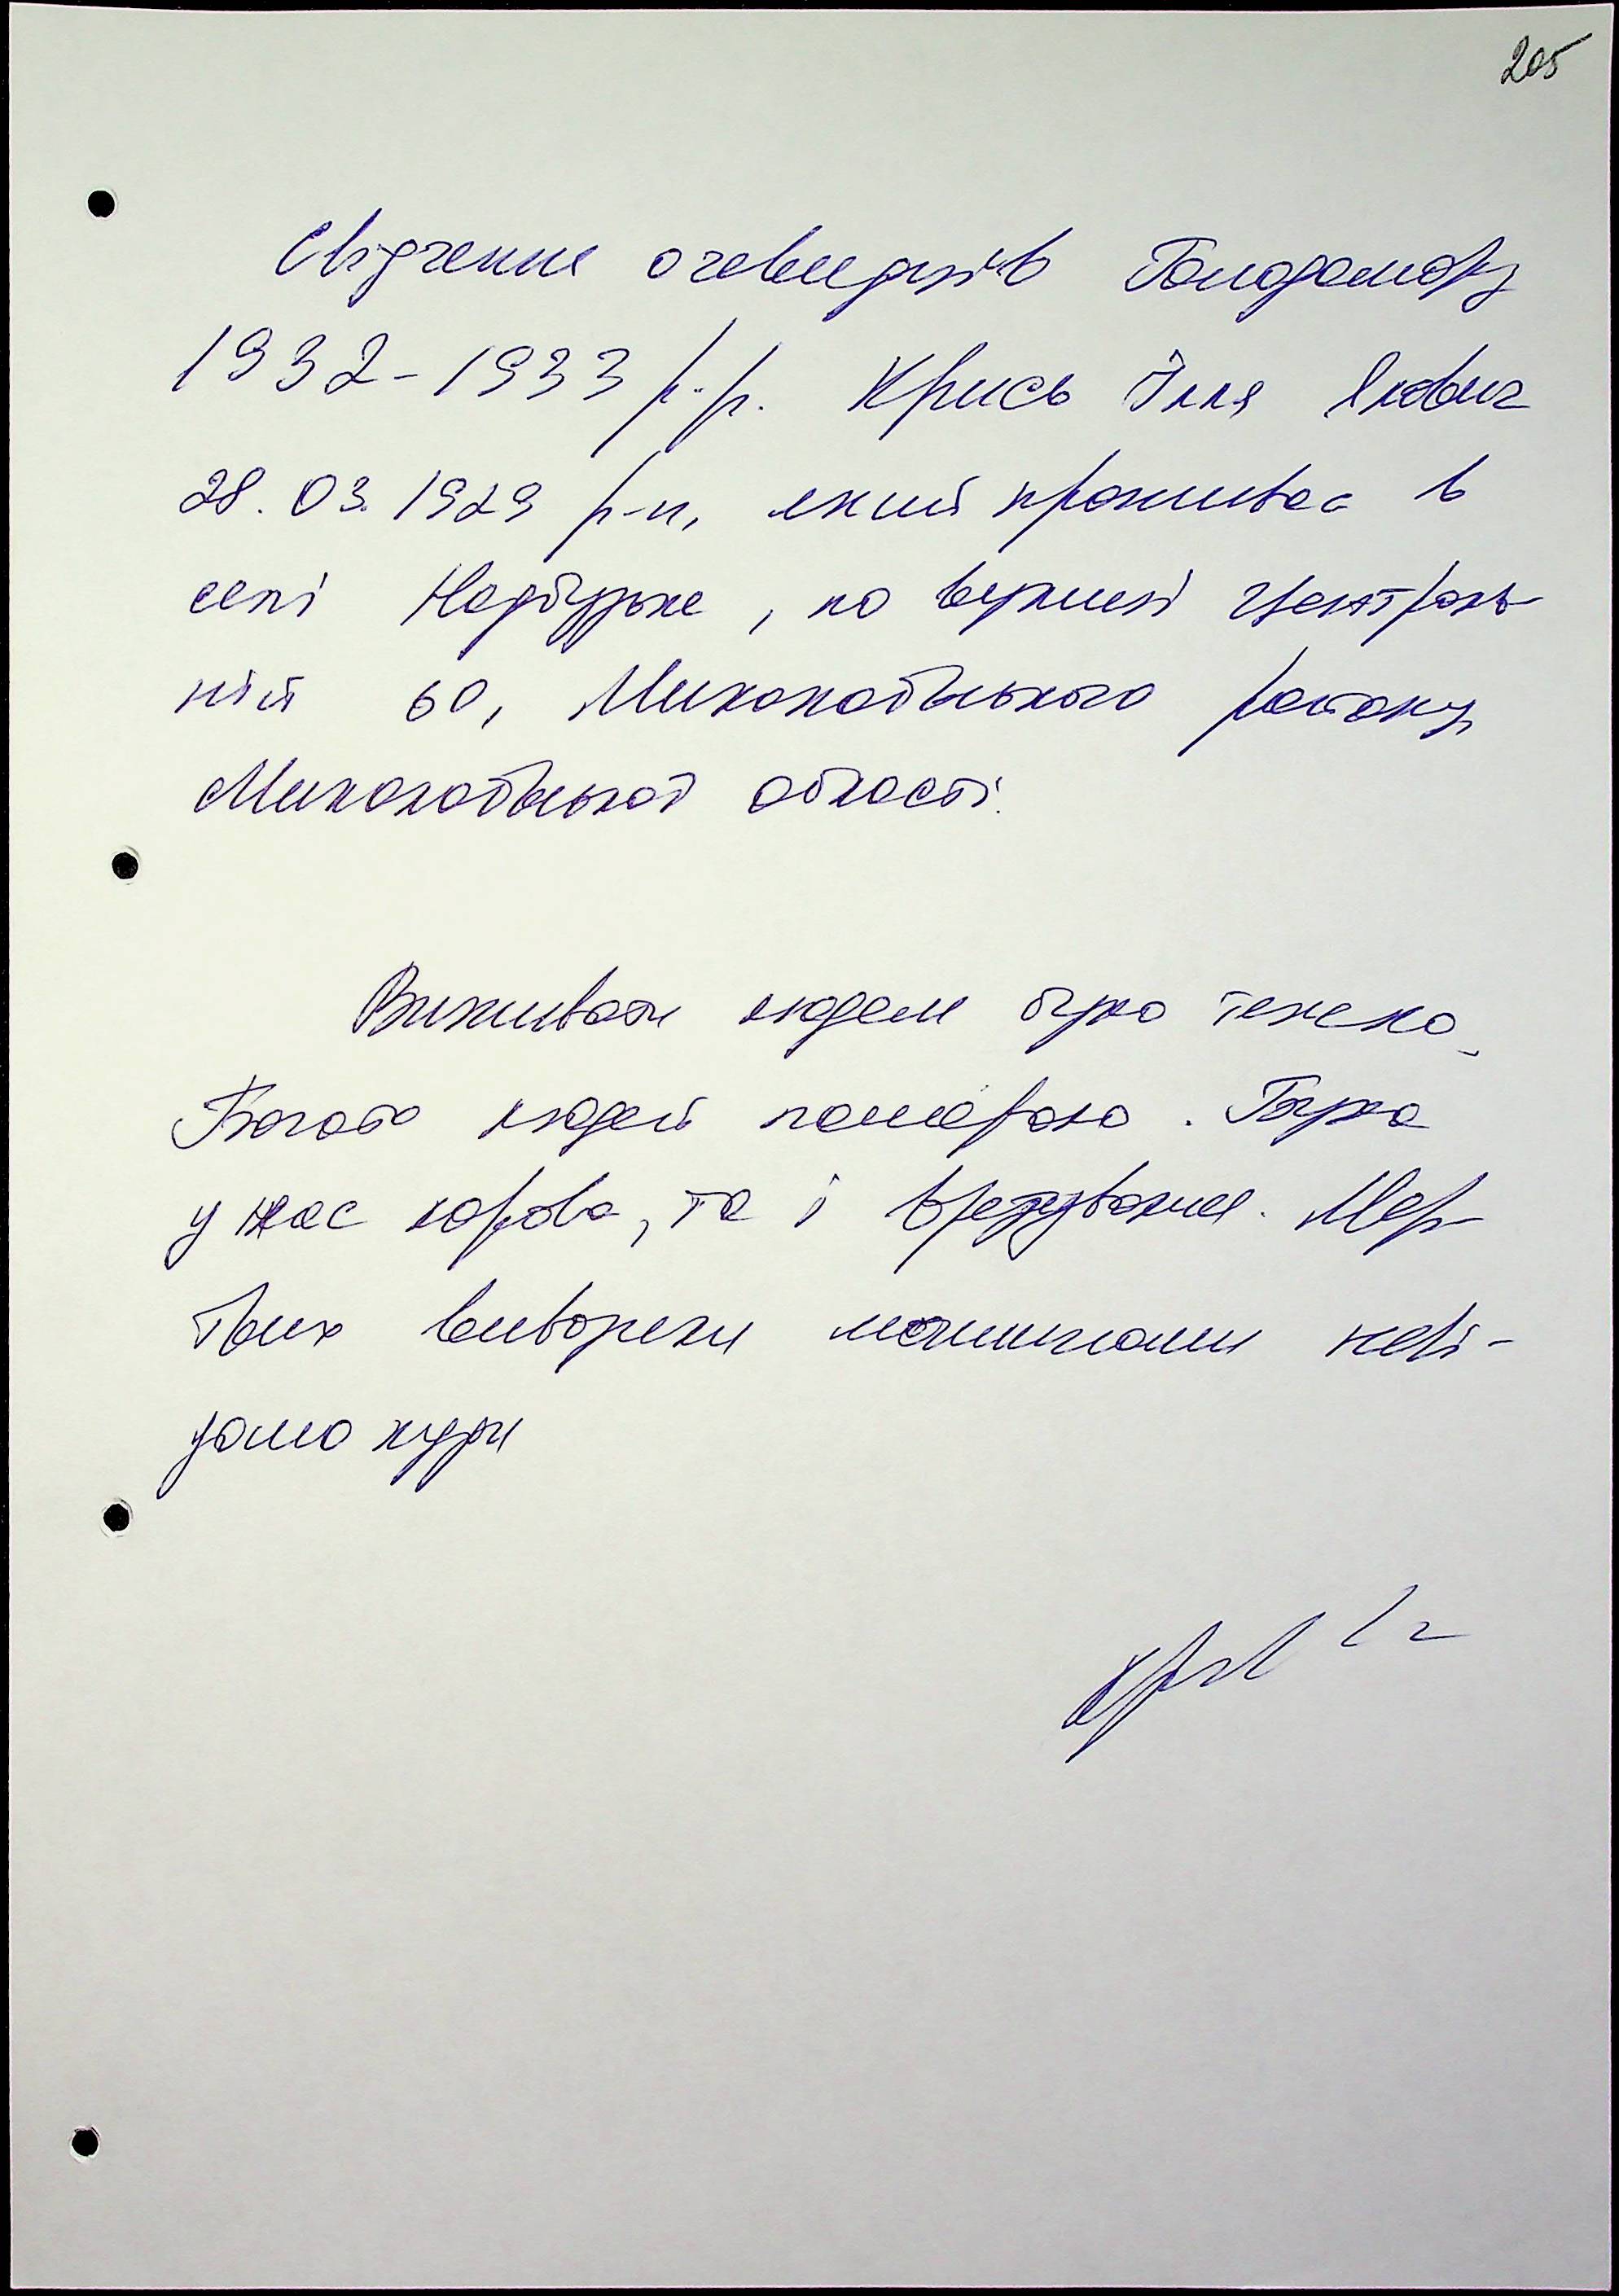 205
Свідчення очевидців Голодомору
1932-1933 р.р. Крись Ілля Якович
28.03.1929 р-н, який проживає в
селі Надбузьке, по вулиці Централь-
ній 60, Миколаївського району
Миколаївської області.
Виживати людям було тяжко.
Багато людей помирало. Була
у нас корова, то і врятувалися. Мер-
твих вивозили машинами неві-
домо куди